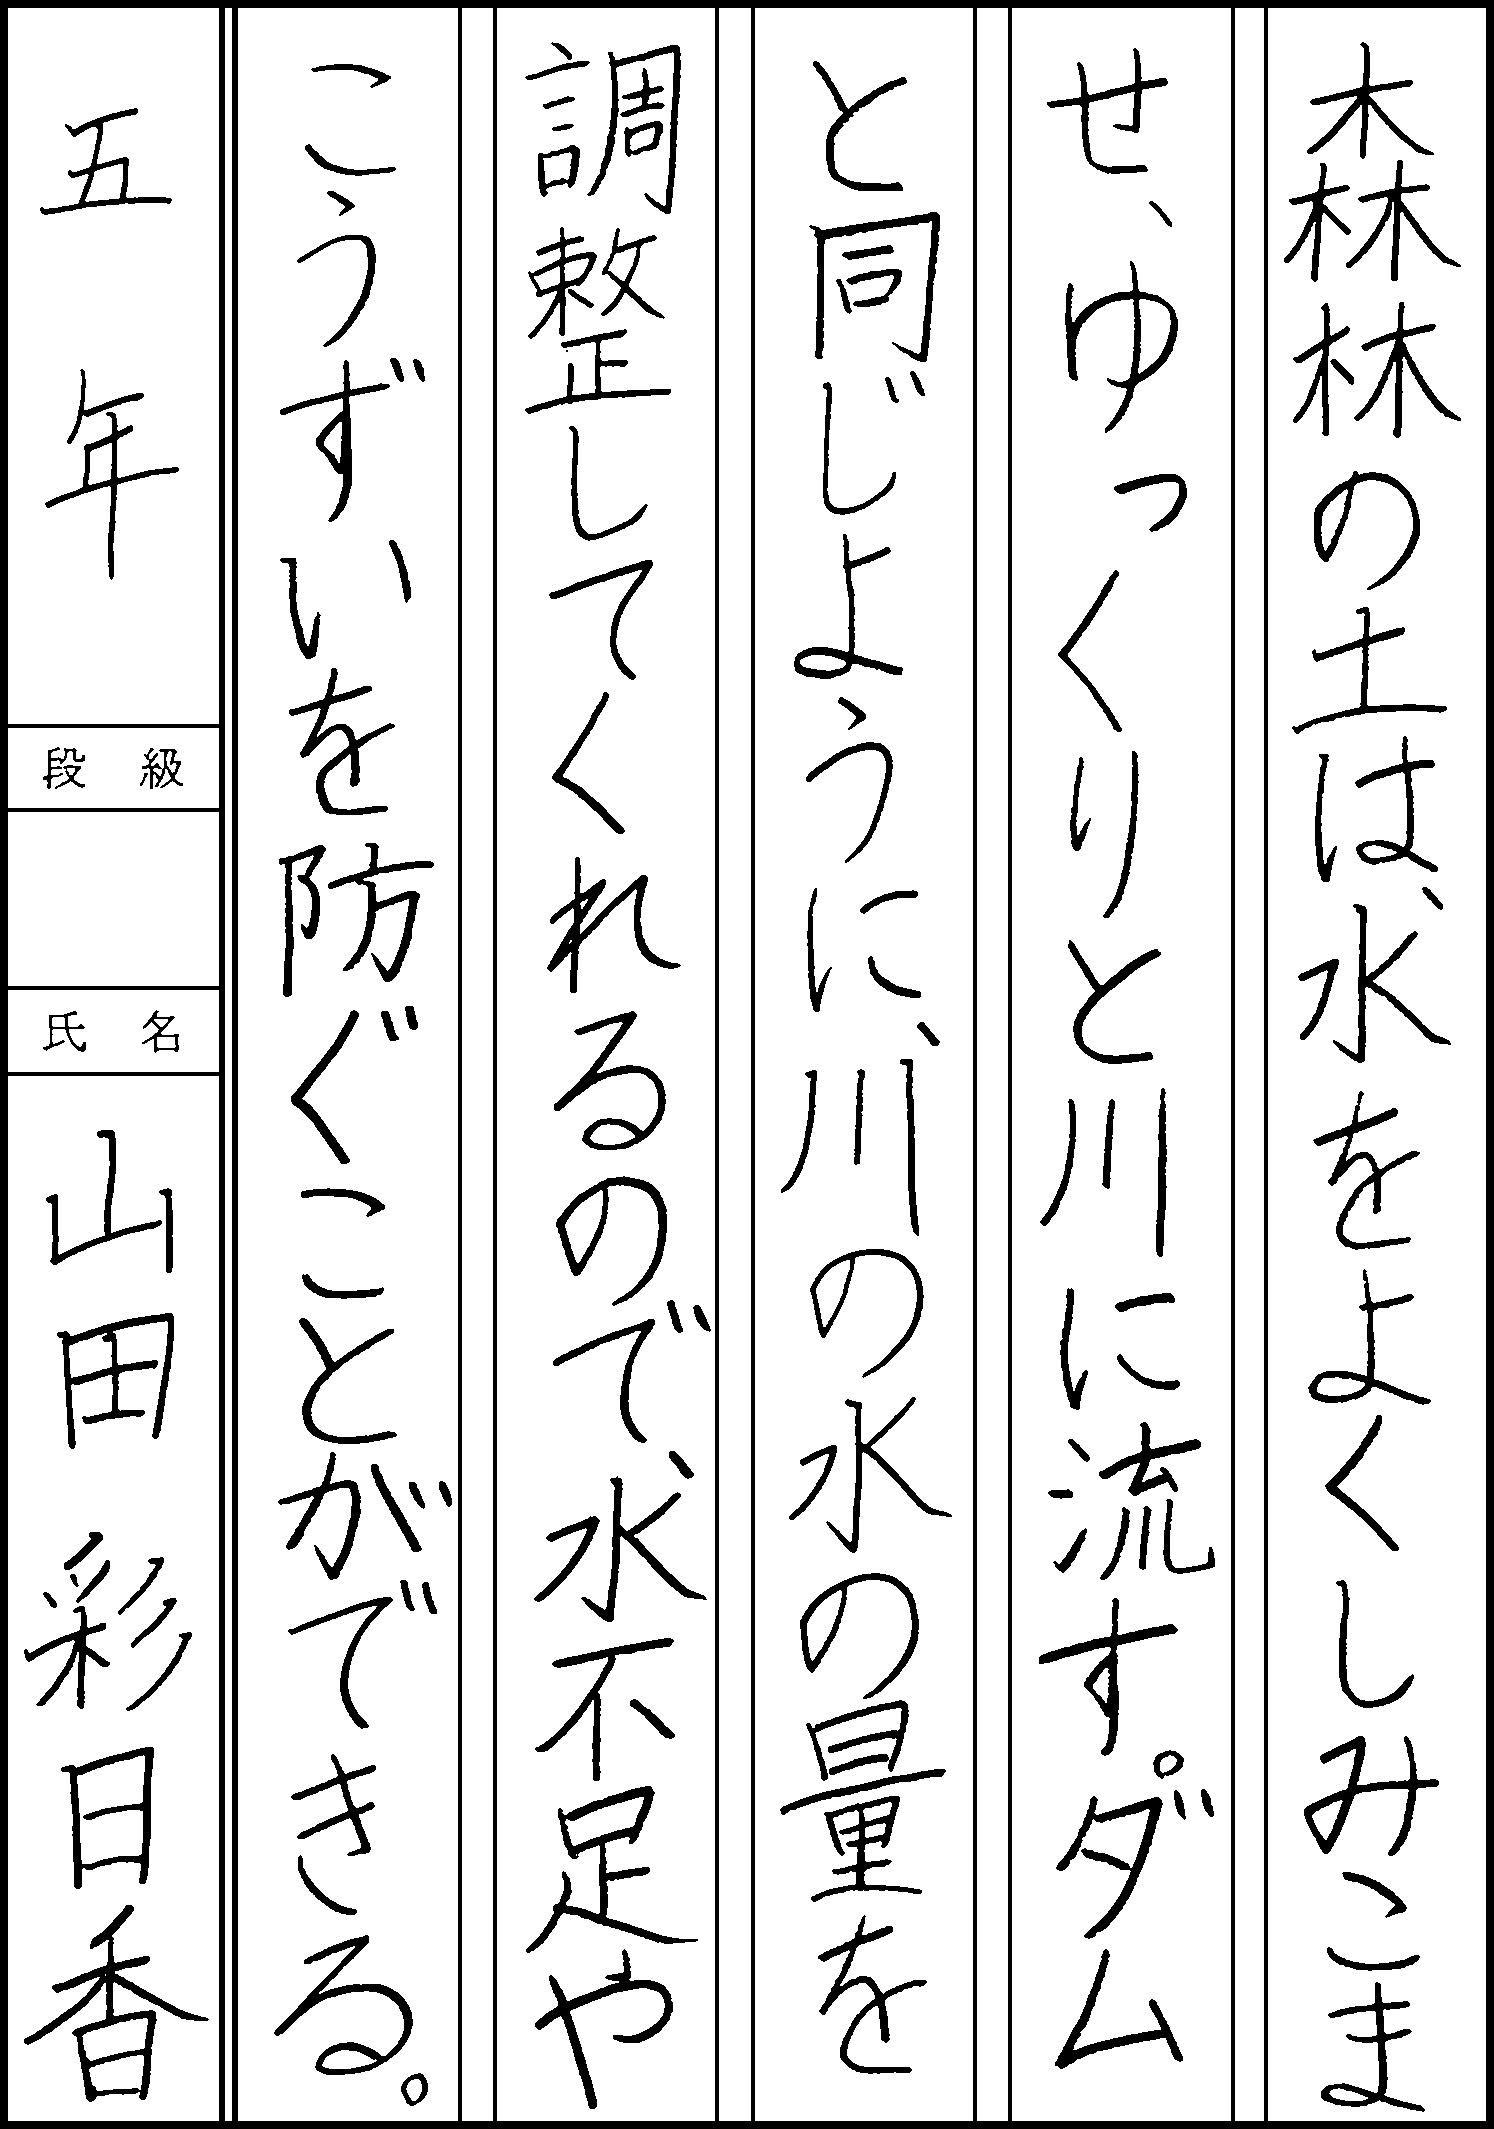 森林の土は、水をよくしみこま
せ、ゆっくりと川に流す。ダム
と同じように、川の水の量を
調整してくれるので、水不足や
こうずいを防ぐことができる。
五年
段級
氏名
山田彩日香